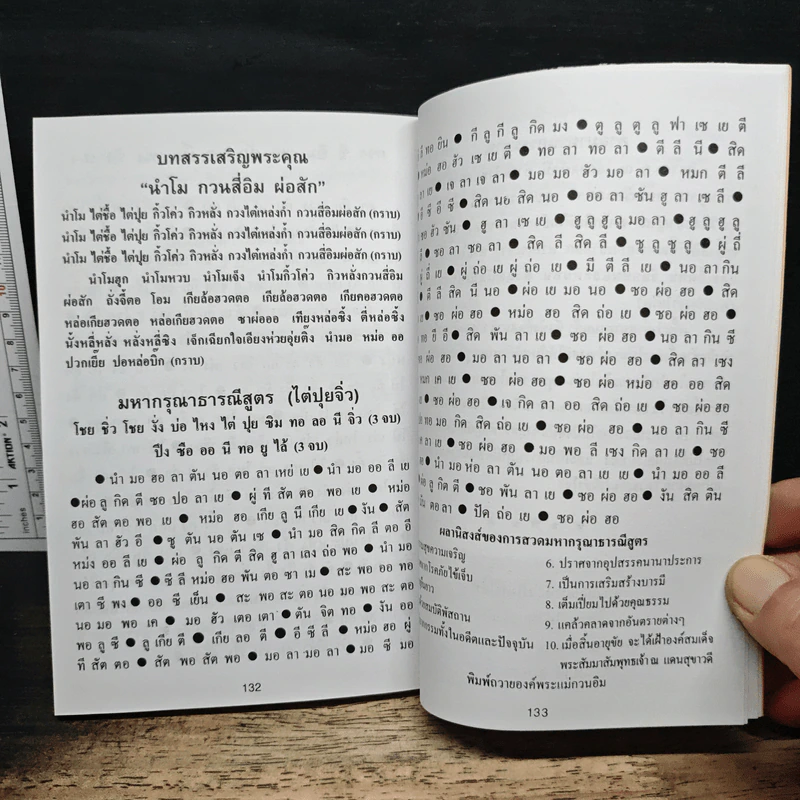 บทสรรเสริญพระคุณ
“นำโม กวนสี่อิม ผ่อสัก”
นำโม ไต่ซื้อ ไต่ปุย กิ้วโค่ว กิวหลั่ง กวงไต๋เหล่งก้ำ กวนสี่อิมผ่อสัก (กราบ)
นำโม ไต่ซื้อ ไต่ปุย กิ้วโค่ว กิวหลั่ง กวงไต๋เหล่งก้ำ กวนสี่อิมผ่อสัก (กราบ)
นำโม ไต่ซื้อ ไต่ปุย กิ้วโค่ว กิวหลั่ง กวงไต๋เหล่งก้ำ กวนสี่อิมผ่อสัก (กราบ)
นำโมฮุก นำโมหวบ นำโมเจ็ง นำโมกิ้วโค่ว กิวหลั่งกวนสี่อิม
ผ่อสัก ถั่งจี้ตอ โอม เกียล้อฮวดตอ เกียล้อฮวดตอ เกียคอฮวดตอ
หล่อเกียฮวดตอ หล่อเกียฮวดตอ ซาผ่อออ เทียงหล่อซิ้ง ตี่หล่อซิ้ง
นั้งหลี่หลั่ง หลั่งหลี่ซิง เจ็กเฉียกใจเอียงห่วยอุ่ยติ๊ง นำมอ หม่อ ออ
ปวกเยี๊ย ปอหล่อบิ๊ก (กราบ)
มหากรุณาธารณีสูตร (ไต่ปุยจิ่ว)
โชย ชิ่ว โชย งั่ง บ่อ ไหง ไต่ ปุย ซิม ทอ ลอ นี จิ่ว (3 จบ)
ปึง ซือ ออ นี ทอ ยู ไล้ (3 จบ)
● นำ มอ ฮอ ลา ตัน นอ ตอ ลา เหย่ เย ● นำ มอ ออ ลี เย
●ผ่อ ลู กิต ตี ซอ ปอ ลา เย ● ผู่ ที สัต ตอ พอ เย ● หม่อ
ฮอ สัต ตอ พอ เย ● หม่อ ฮอ เกีย ลู นี เกีย เย ● งัน ● สัต
พัน ลา ฮัว อี ● ซู ตัน นอ ตัน เซ ● นำ มอ สิด กิด ลี ตอ อี
หม่ง ออ ลี เย ● ผ่อ ลู กิด ตี สิด ฮู ลา เลง ถ่อ พอ ● นำ มอ
นอ ลา กิน ซี ● ซี ลี หม่อ ฮอ พัน ตอ ซา เม ● สะ พอ ออ ทอ
เตา ซี พง ● ออ ซี เย็น ● สะ พอ สะ ตอ นอ มอ พอ สะ ตอ
นอ มอ พอ เค ● มอ ฮัว เตอ เตา ● ตัน จิต ทอ ● งัน ออ
พอ ลู ซี ● ลู เกีย ตี ● เกีย ลอ ตี ● อี ซี ลี ● หม่อ ฮอ ผู่
ที สัต ตอ ● สัต พอ สัต พอ ● มอ ลา มอ ลา ● มอ ซี มอ
132
ที ทอ ยิน ● กี ลู กี ลู กิด มง ● ตู ลู ตู ลู ฟา เซ เย ตี
หม่อ ฮอ ฮัว เซ เย ตี ● ทอ ลา ทอ ลา ● ตี ลี นี ● สิด
เย ● เจ ลา เจ ลา ● มอ มอ ฮัว มอ ลา ● หมก ตี ลี
อี ซี อี ซี ● สิด นอ สิด นอ ● ออ ลา ซัน ฮู ลา เซ ลี ●
ซอ ฮัว ซัน ● ฮู ลา เซ เย ● ฮู ลู ฮู ลู มอ ลา ● ฮู ลู ฮู ลู
● ซอ ลา ซอ ลา ● สิด ลี สิด ลี ● ซู ลู ซู ลู ● ผู่ ถี่
ถี่ เย ● ผู่ ถ่อ เย ผู่ ถ่อ เย ● มี ตี ลี เย ● นอ ลา กิน
● ตี ลี สิด นี นอ ● ผ่อ เย มอ นอ ● ซอ ผ่อ ฮอ ● สิด
● ซอ ผ่อ ฮอ ● หม่อ ฮอ สิด ถ่อ เย ● ซอ ผ่อ ฮอ ●
ทอ ยี อี ● สิด พัน ลา เย ● ซอ ผ่อ ฮอ ● นอ ลา กิน ซี
● ซอ ผ่อ ฮอ ● มอ ลา นอ ลา ● ซอ ผ่อ ฮอ ● สิด ลา เซง
หมก เค เย ● ซอ ผ่อ ฮอ ● ซอ ผ่อ หม่อ ฮอ ออ สิด
● ซอ ผ่อ ฮอ ● เจ กิด ลา ออ สิด ถ่อ เย ● ซอ ผ่อ ฮอ
ทอ มอ กิด สิด ถ่อ เย ● ซอ ผ่อ ฮอ ● นอ ลา กิน ซี
ลา เย ● ซอ ผ่อ ฮอ ● มอ พอ ลี เซง กิด ลา เย ● ซอ
ฮอ ● นำ มอ ห่อ ลา ตัน นอ ตอ ลา เย เย ● นำ มอ ออ ลี
ลู กิด ตี ● ซอ พัน ลา เย ● ซอ ผ่อ ฮอ ● งัน สิด ติน
ตอ ลา ● ปัด ถ่อ เย ● ซอ ผ่อ ฮอ
ผลานิสงส์ของการสวดมหากรุณาธารณีสูตร
สุขความเจริญ
โรคภัยไข้เจ็บ
สมบัติพัสถาน
กรรมทั้งในอดีตและปัจจุบัน
6. ปราศจากอุปสรรคนานาประการ
7. เป็นการเสริมสร้างบารมี
8. เต็มเปี่ยมไปด้วยคุณธรรม
9. แคล้วคลาดจากอันตรายต่างๆ
10. เมื่อสิ้นอายุขัย จะได้เฝ้าองค์สมเด็จ
พระสัมมาสัมพุทธเจ้า ณ แดนสุขาวดี
พิมพ์ถวายองค์พระแม่กวนอิม
133